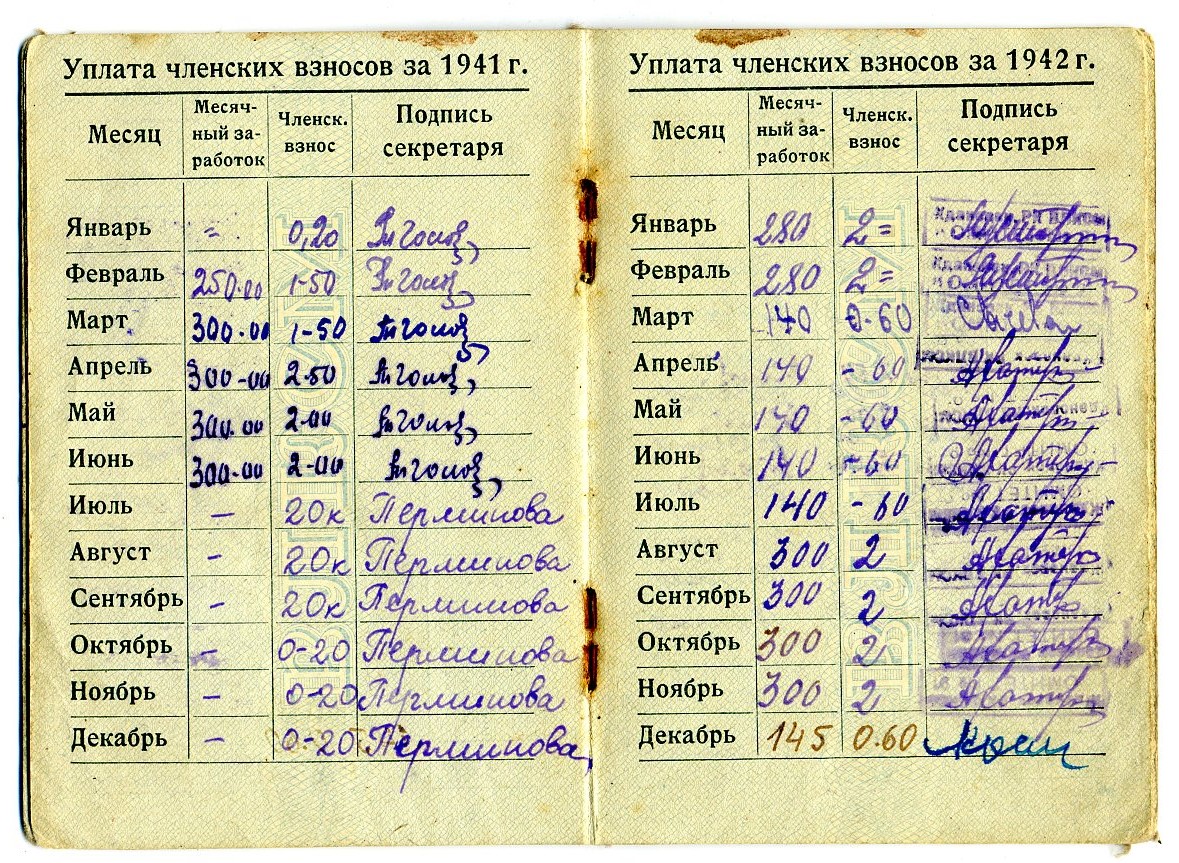 Уплата членских взносов за 1941 г.
Месяц Месяч-ный за-работок Членск. взнос Подпись секретаря
Январь = 0,20
Февраль 250.00 1-50
Март 300.00 1-50
Апрель 300-00 2-50
Май 300.00 2-00
Июнь 300-00 2-00
Июль — 20к Перминова
Август — 20к Перминова
Сентябрь — 20к Перминова
Октябрь — 0-20 Перминова
Ноябрь — 0-20 Перминова
Декабрь — 0-20 Перминова
Уплата членских взносов за 1942 г.
Месяц Месяч-ный за-работок Членск. взнос Подпись секретаря
Январь 280 2=
Февраль 280 2=
Март 140 0-60
Апрель 140 -60
Май 140 -60
Июнь 140 -60
Июль 140 -60
Август 300 2
Сентябрь 300 2
Октябрь 300 2
Ноябрь 300 2
Декабрь 145 0.60